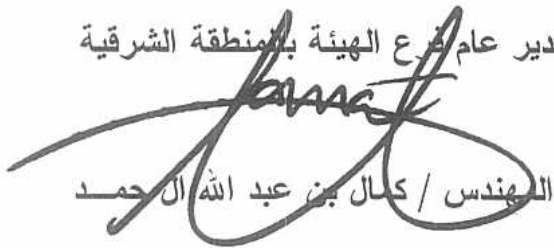 دير عام فرع الهيئة بالمنطقة الشرقية
المهندس / كمال بن عبد الله ال حمــد